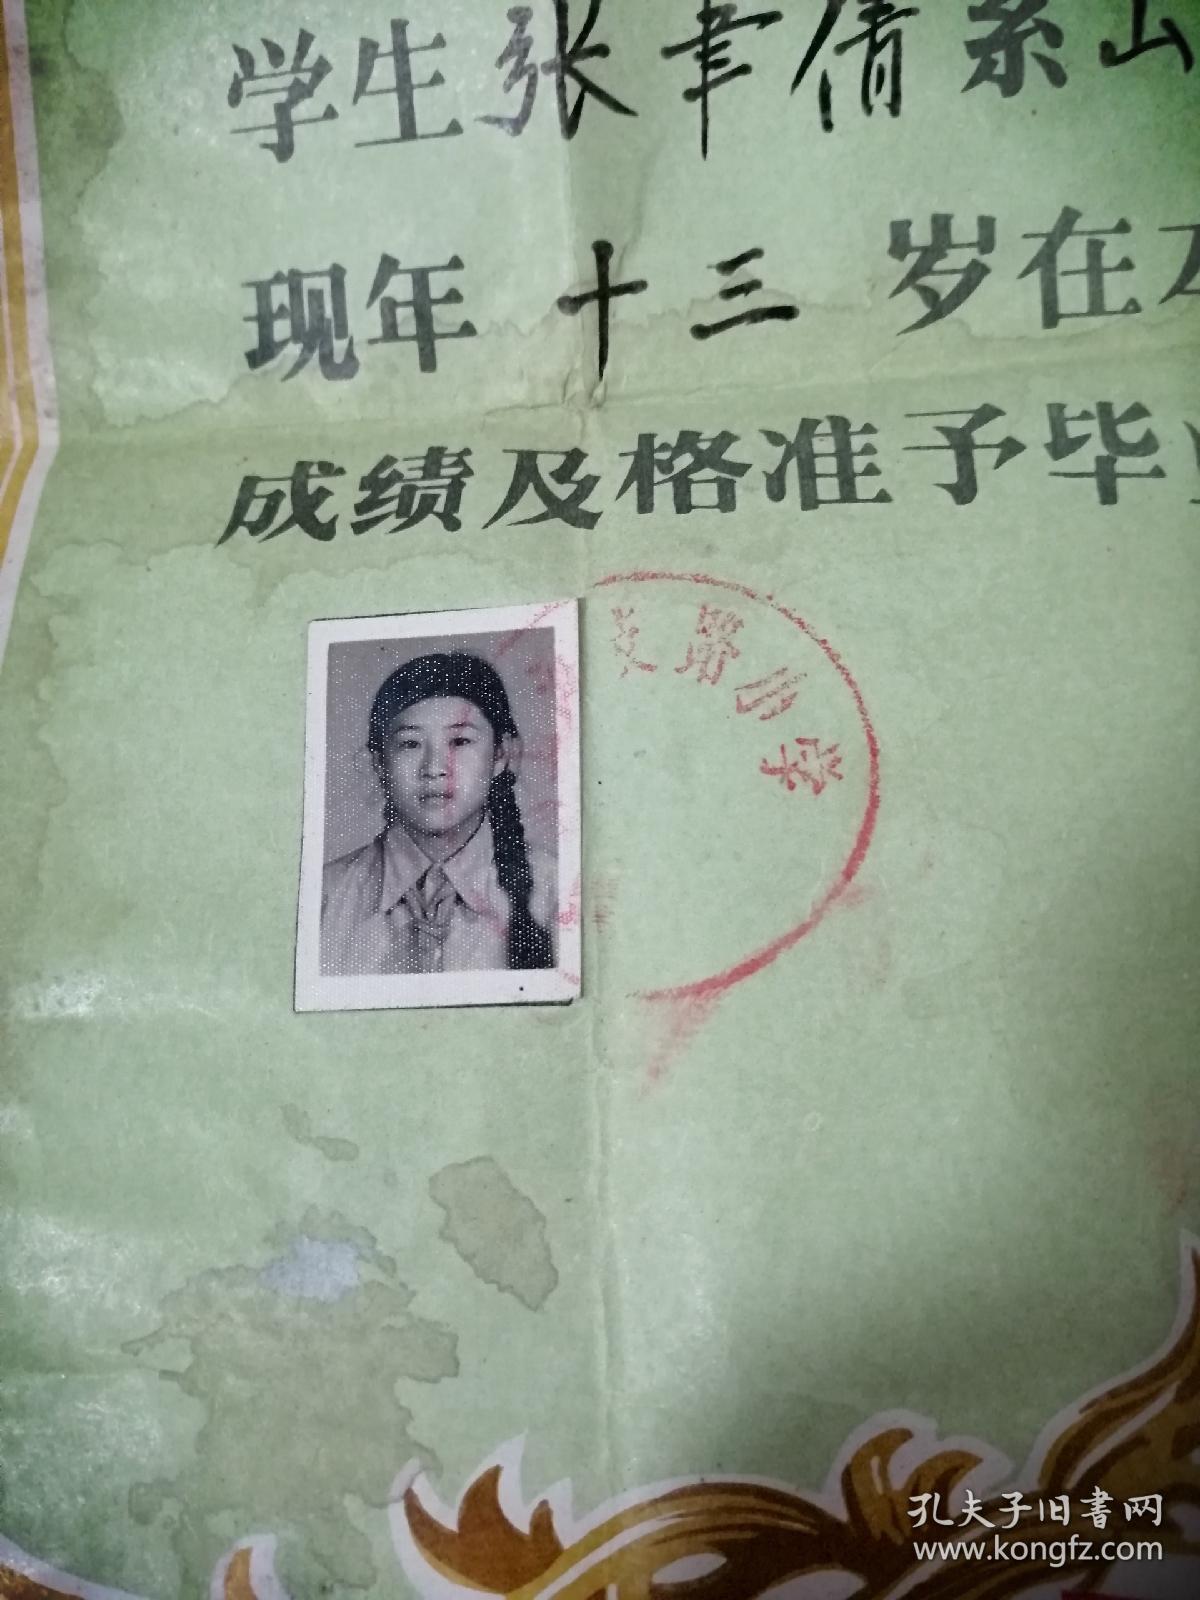 学生张聿倩系山
现年十三岁在
成绩及格准予毕
路小学
孔夫子旧书网
www.kongfz.com